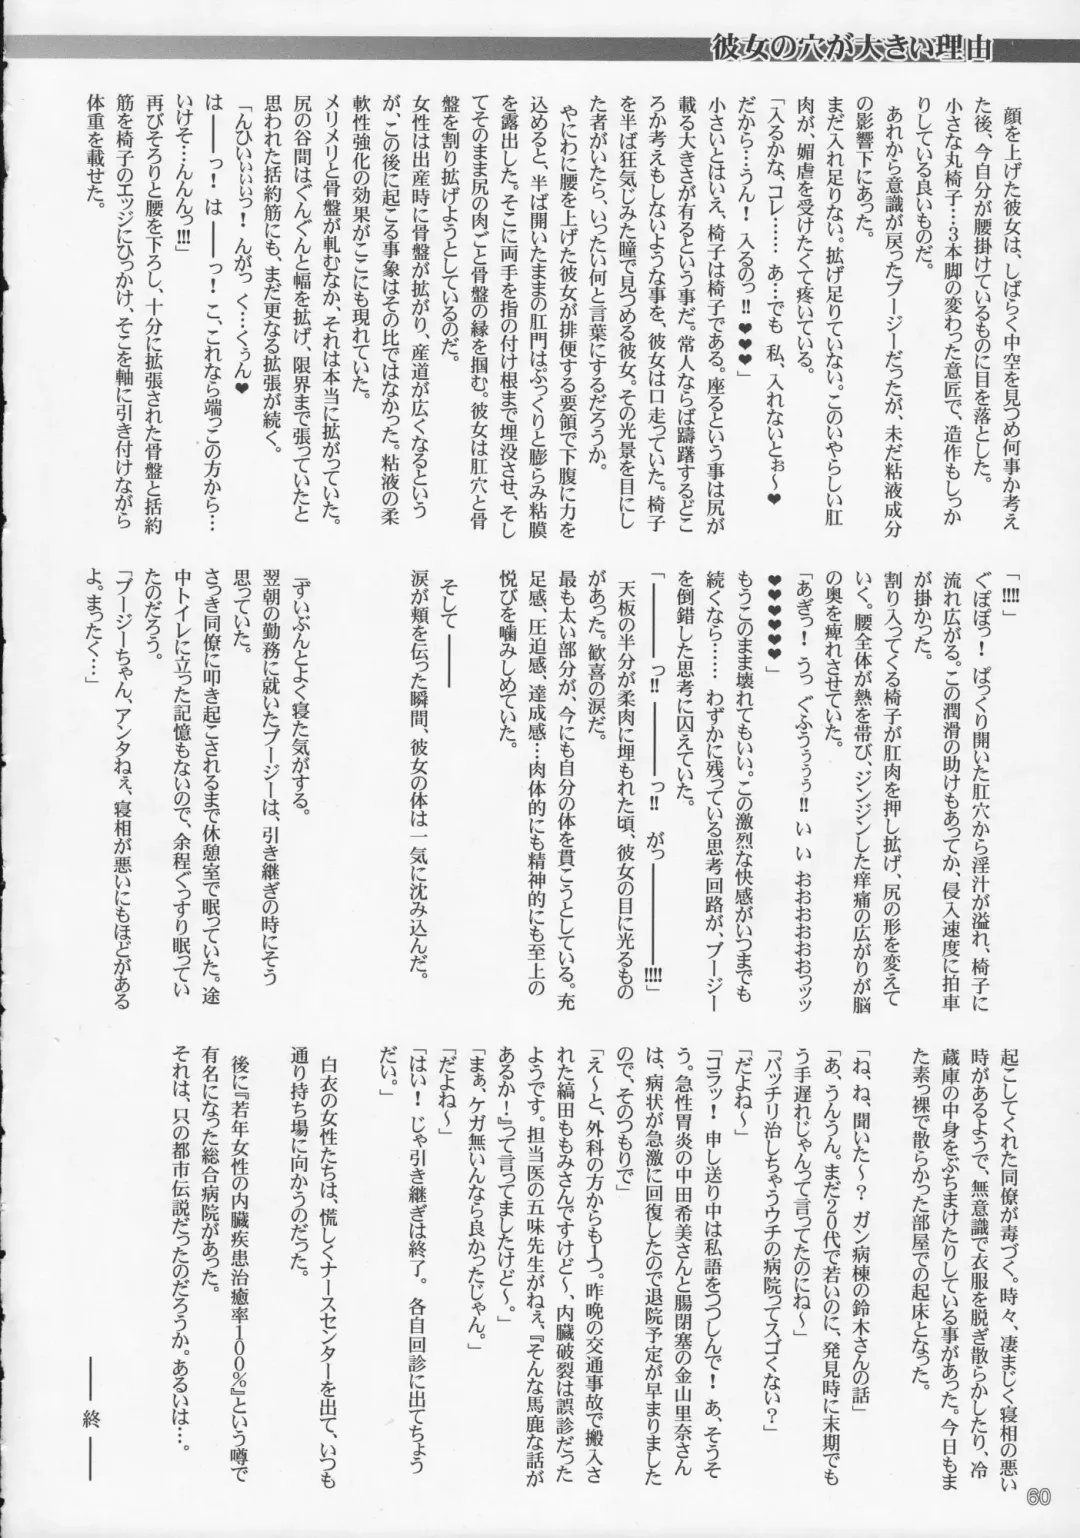 彼女の穴が大きい理由
顔を上げた彼女は、しばらく中空を見つめ何事か考え
た後、今自分が腰掛けているものに目を落とした。
小さな丸椅子…3本脚の変わった意匠で、造作もしっか
りしている良いものだ。
あれから意識が戻ったブージーだったが、未だ粘液成分
の影響下にあった。
まだ入れ足りない。拡げ足りていない。このいやらしい肛
肉が、媚虐を受けたくて疼いている。
「入るかな、コレ…… あ…でも 私、入れないとぉ〜❤
だから…うん！ 入るのっ‼❤❤❤」
小さいとはいえ、椅子は椅子である。座るという事は尻が
載る大きさが有るという事だ。常人ならば躊躇するどこ
ろか考えもしないような事を、彼女は口走っていた。椅子
を半ば狂気じみた瞳で見つめる彼女。その光景を目にし
た者がいたら、いったい何と言葉にするだろうか。
やにわに腰を上げた彼女が排便する要領で下腹に力を
込めると、半ば開いたままの肛門はぷっくりと膨らみ粘膜
を露出した。そこに両手を指の付け根まで埋没させ、そし
てそのまま尻の肉ごと骨盤の縁を掴む。彼女は肛穴と骨
盤を割り拡げようとしているのだ。
女性は出産時に骨盤が拡がり、産道が広くなるという
が、この後に起こる事象はその比ではなかった。粘液の柔
軟性強化の効果がここにも現れていた。
メリメリと骨盤が軋むなか、それは本当に拡がっていた。
尻の谷間はぐんぐんと幅を拡げ、限界まで張っていたと
思われた括約筋にも、まだ更なる拡張が続く。
「んひいぃぃっ！ んがっ く…くぅん❤
は――っ！ は ――っ！ こ、これなら端っこの方から…
いけそ…んんんっ!!!」
再びそろりと腰を下ろし、十分に拡張された骨盤と括約
筋を椅子のエッジにひっかけ、そこを軸に引き付けながら
体重を載せた。
「!!!!」
ぐぽぽっ！ ぱっくり開いた肛穴から淫汁が溢れ、椅子に
流れ広がる。この潤滑の助けもあってか、侵入速度に拍車
が掛かった。
割り入ってくる椅子が肛肉を押し拡げ、尻の形を変えて
いく。腰全体が熱を帯び、ジンジンした痒痛の広がりが脳
の奥を痺れさせていた。
「あぎっ！ うっ ぐふうぅぅぅ‼ い い おおおおおおっッッ
❤❤❤❤❤❤」
もうこのまま壊れてもいい。この激烈な快感がいつまでも
続くなら…… わずかに残っている思考回路が、ブージー
を倒錯した思考に囚えていた。
「――――っ‼ ――――っ‼ がっ――――――!!!!」
天板の半分が柔肉に埋もれた頃、彼女の目に光るもの
があった。歓喜の涙だ。
最も太い部分が、今にも自分の体を貫こうとしている。充
足感、圧迫感、達成感…肉体的にも精神的にも至上の
悦びを噛みしめていた。
そして――
涙が頬を伝った瞬間、彼女の体は一気に沈み込んだ。
『ずいぶんとよく寝た気がする。
翌朝の勤務に就いたブージーは、引き継ぎの時にそう
思っていた。
さっき同僚に叩き起こされるまで休憩室で眠っていた。途
中トイレに立った記憶もないので、余程ぐっすり眠ってい
たのだろう。
「ブージーちゃん、アンタねぇ、寝相が悪いにもほどがある
よ。まったく…」
起こしてくれた同僚が毒づく。時々、凄まじく寝相の悪い
時があるようで、無意識で衣服を脱ぎ散らかしたり、冷
蔵庫の中身をぶちまけたりしている事があった。今日もま
た素っ裸で散らかった部屋での起床となった。
「ね、ね、聞いた〜？ ガン病棟の鈴木さんの話」
「あ、うんうん。まだ20代で若いのに、発見時に末期でも
う手遅れじゃんって言ってたのにね〜」
「バッチリ治しちゃうウチの病院ってスゴくない？」
「だよね〜」
「コラッ！ 申し送り中は私語をつつしんで！ あ、そうそ
う。急性胃炎の中田希美さんと腸閉塞の金山里奈さん
は、病状が急激に回復したので退院予定が早まりました
ので、そのつもりで」
「え〜と、外科の方からも1つ。昨晩の交通事故で搬入さ
れた縞田ももみさんですけど〜、内臓破裂は誤診だった
ようです。担当医の五味先生がねぇ、『そんな馬鹿な話が
あるか！』って言ってましたけど〜。」
「まぁ、ケガ無いんなら良かったじゃん。」
「だよね〜」
「はい！ じゃ引き継ぎは終了。 各自回診に出てちょう
だい。」
白衣の女性たちは、慌しくナースセンターを出て、いつも
通り持ち場に向かうのだった。
後に『若年女性の内臓疾患治癒率100％』という噂で
有名になった総合病院があった。
それは、只の都市伝説だったのだろうか。あるいは…。
―― 終 ――
60